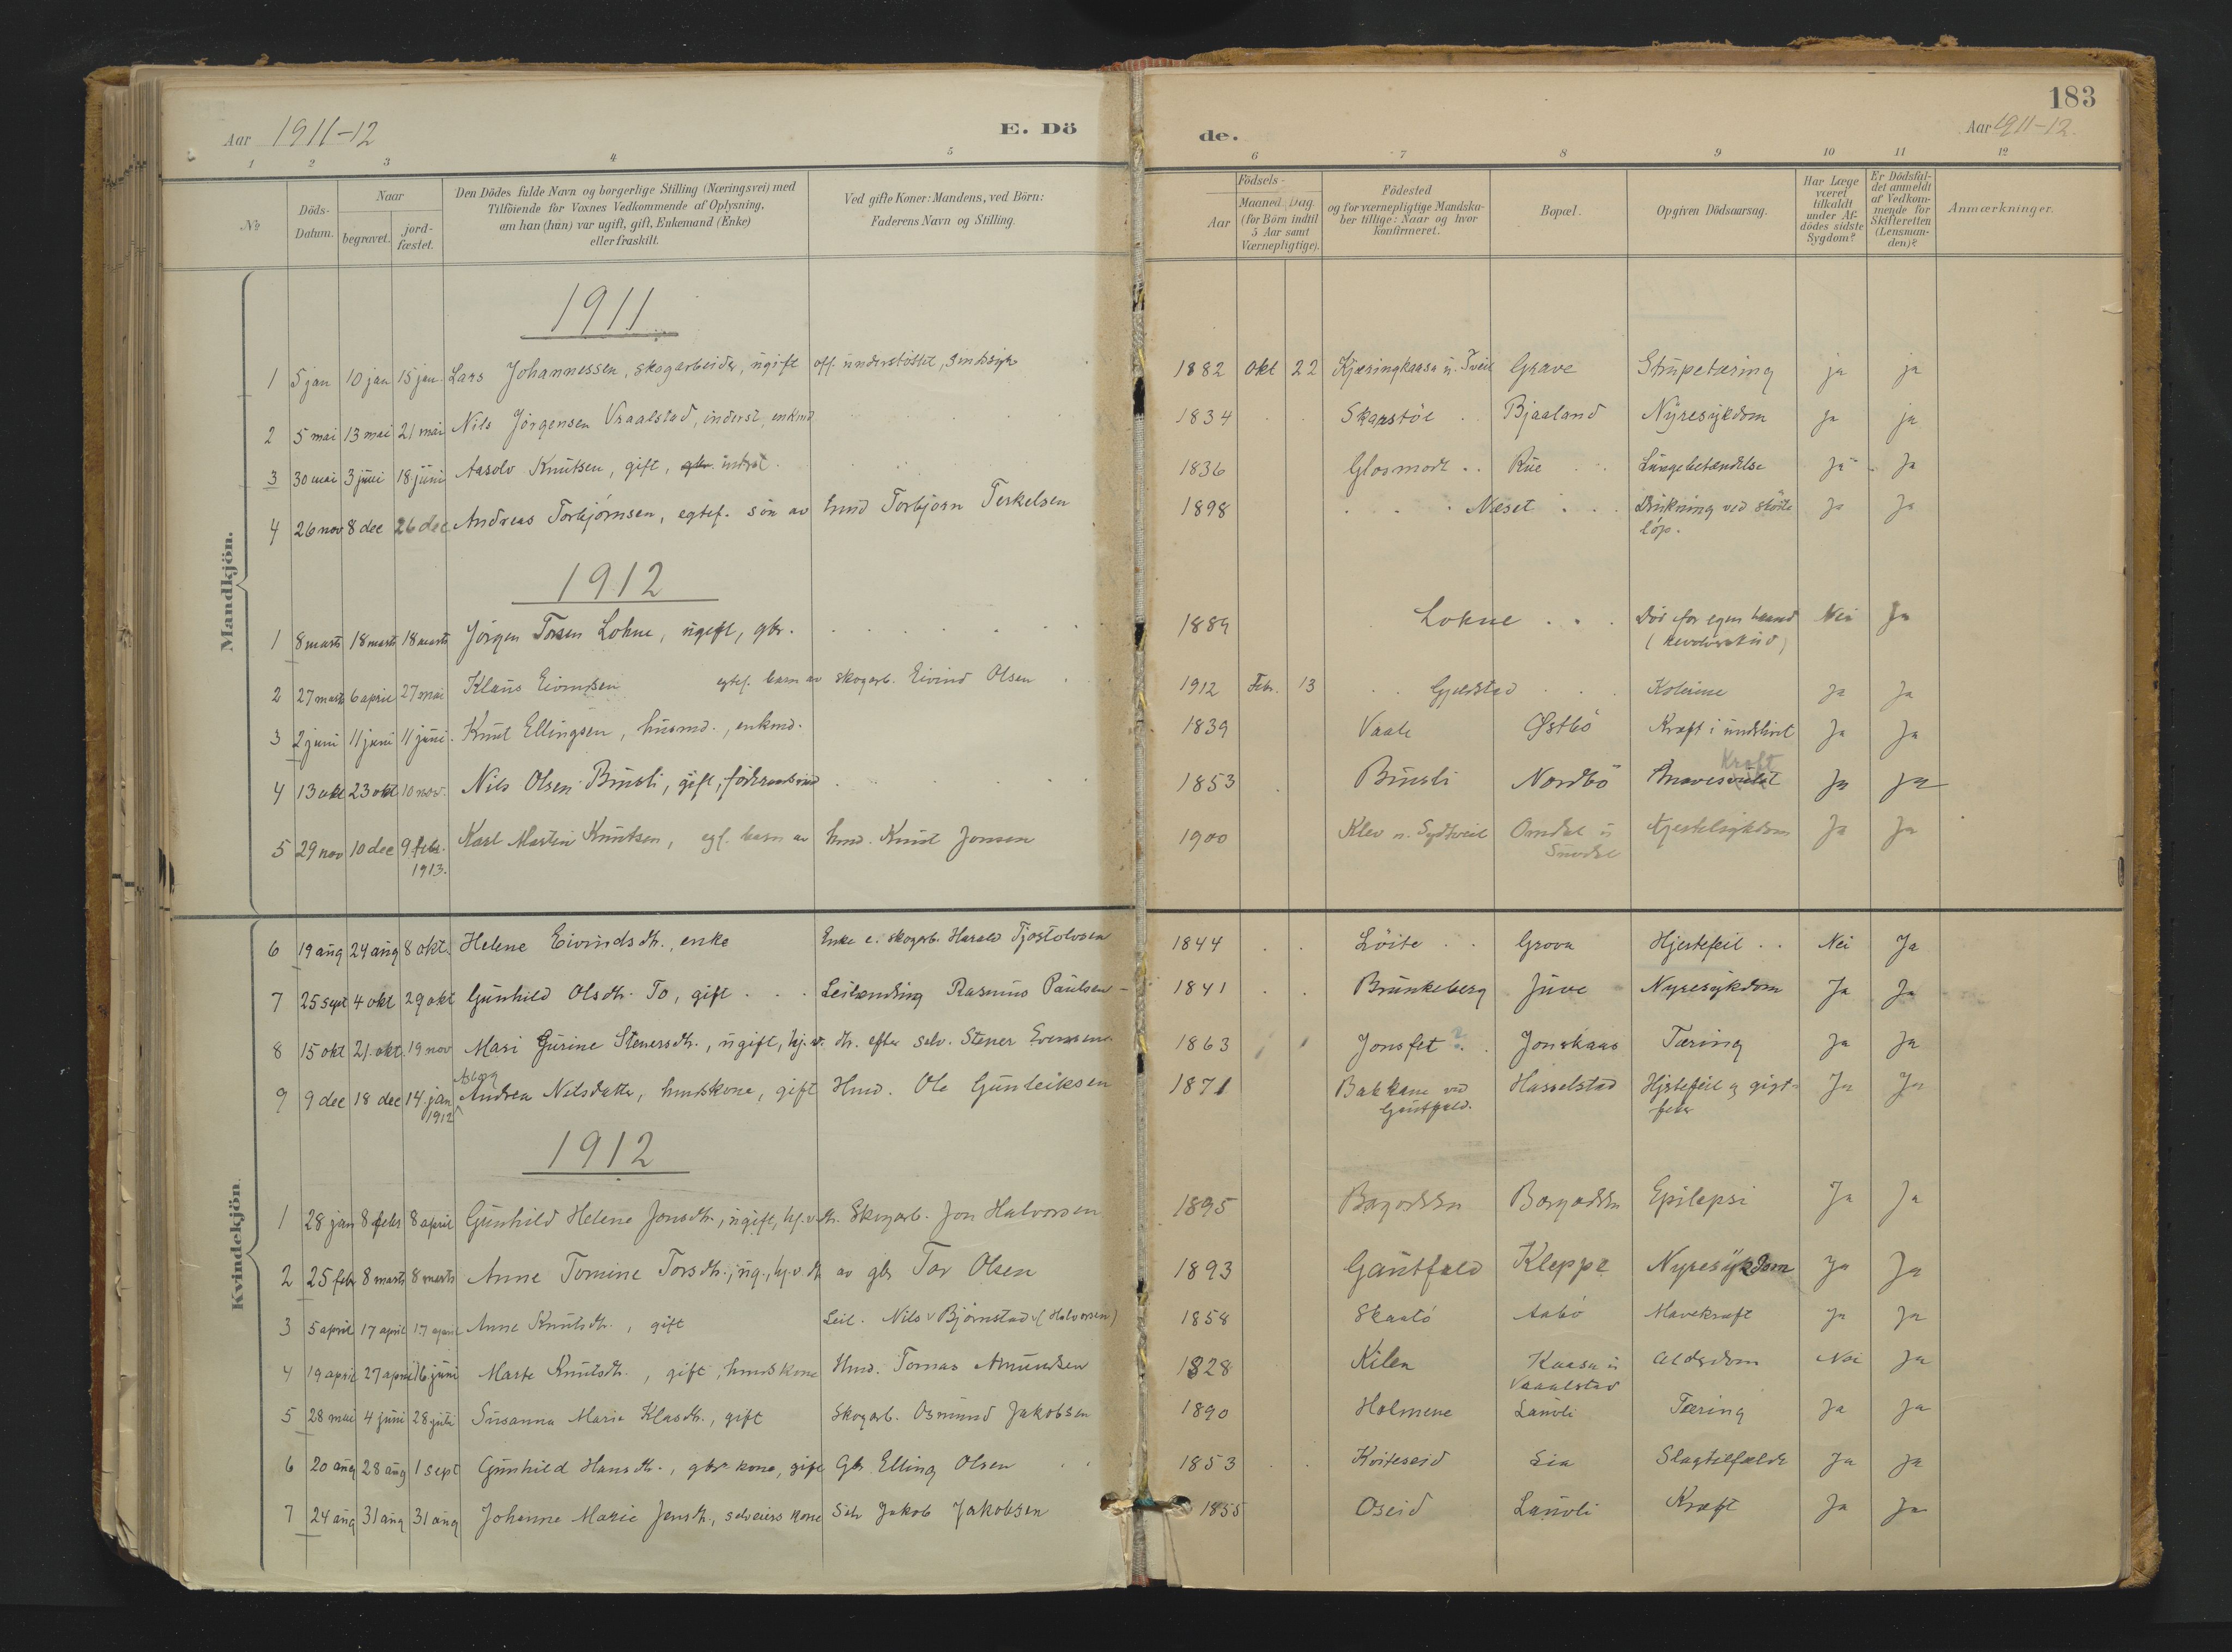 183
Aar 1911-12
E. Dö
de.
Aar 1911-12.
1 2 3 4 5 6 7 8 9 10 11 12
№
Döds-Datum.
Naar
begravet.
jord-fæstet.
Den Dödes fulde Navn og borgerlige Stilling (Næringsvei) med
Tilföiende for Voxnes Vedkommende af Oplysning,
om han (hun) var ugift, gift, Enkemand (Enke)
eller fraskilt.
Ved gifte Koner: Mandens, ved Börn:
Faderens Navn og Stilling.
Aar
Födsels-
Maaned. Dag.
(for Börn indtil
5 Aar samt
Værnepligtige).
Födested
og for værnepligtige Mandska-
ber tillige: Naar og hvor
konfirmeret.
Bopæl.
Opgiven Dödsaarsag.
Har Læge
været
tilkaldt
under Af-
dödes sidste
Sygdom?
Er Dödsfal-
det anmeldt
af Vedkom-
mende for
Skifteretten
(Lensman-
den)?
Anmærkninger.
Mandkjön.
1911
1 5 jan 10 jan 15 jan. Lars Johannessen, skogarbeider, ugift off. understöttet, sindssyk 1882 Okt 22 Kjæringkaasa u. Tveit Grave Strupetæring ja ja
2 5 mai 13 mai 21 mai Nils Jörgensen Vraalstad, inderst, enkmd 1834 Skarstöl Bjaaland Nyresykdom Ja ja
3 30 mai 3 juni 18 juni Aasolv Knutsen, gift, gbr. indrst. 1836 Glosmodt Rue Lungebetændelse Ja Ja
4 26 nov 8 dec 26 dec Andreas Torbjörnsen, egtef. sön av hmd Torbjörn Terkelsen 1898 Næset Drukning ved sköite
löp. Ja Ja
1912
1 8 marts 18 marts 18 marts Jörgen Torsen Lohne, ugift, gbr. 1889 Lohne Död for egen haand
(Revolverskud) Nei Ja
2 27 marts 6 april 27 mai Klaus Eivindsen egtef. barn av skogarb. Eivind Olsen 1912 Febr. 13 Gjeldstad Kolerine Ja Ja
3 2 juni 11 juni 11 juni. Knut Ellingsen, husmd., enkmd. 1839 Vaale Østbö Kræft i underlivet Ja Ja
4 13 okt 23 okt 10 nov. Nils Olsen Binsli, gift, föderaadsmd 1853 Binsli Nordbö Mavesvulst Kræft Ja Ja
5 29 nov 10 dec 9 febr.
1913. Karl Martin Knutsen, egf. barn av hmd. Knut Jonsen 1900 Klev u. Sydtveit Omdal u
Sundsl Kjertelsykdom Ja Ja
Kvindekjön.
6 19 aug 24 aug 8 okt. Helene Eivindsdtr., enke Enke e. skogarb. Harald Tjostolvsen 1844 Löite Grova Hjertefeil Nei Ja
7 25 sept 4 okt 29 okt Gunhild Olsdtr. To, gift Leilending Rasmus Paulsen 1841 Brunkeberg Juve Nyresykdom Ja Ja
8 15 okt 21. okt. 19 nov Mari Gurine Stenersdtr., ugift, hj.v. dtr. efter selv. Stener Evensen 1863 Jonsfet ? Jonskaas Tæring Ja Ja
9 9 dec 18 dec 14. jan
1912 Asborg
Andrea Nilsdatter, hmdskone, gift Hmd. Ole Gunleiksen 1871 Bakkane ved
Gautfald. Hasselstad Hjertefeil og gigt-
feber Ja Ja
1912
1 28 jan 8 febr 8 april Gunhild Helene Jonsdtr., ugift, hj.v. dtr. Skogarb. Jon Halvorsen 1895 Epilepsi Ja Ja
2 25 febr 8 marts 8 marts Anne Tomine Torsdtr., ug., hj.v. dtr. av gbr Tor Olsen 1893 Gautfald Kleppe Nyresykdom Ja Ja
3 5 april 17 april 17 april Anne Knutsdtr., gift Leil. Nils Björnstad (Halvorsen) 1858 Skaatö Aabö Mavekræft Ja Ja
4 19 april 27 april 16 juni Marte Knutsdtr., gift, hmdskone Hmd. Tomas Amundsen 1828 Kilen Kaasa u
Vraalstad Alderdom Nei Ja
5 28 mai 4 juni 28 juli Susanna Maria Klasdtr., gift Skogarb. Osmund Jakobsen 1890 Holmene Lauvli Tæring Ja Ja
6 20 aug 28 aug 1 sept Gunhild Hansdtr., gbr. kone, gift Gbr. Elling Olsen 1853 Kviteseid Lia Slagtilfælde Ja Ja
7 24 aug 31 aug 31 aug Johanne Marie Jensdtr., selveiers kone Selv Jakob Jakobsen 1855 Oseid Lauvli Kræft Ja Ja